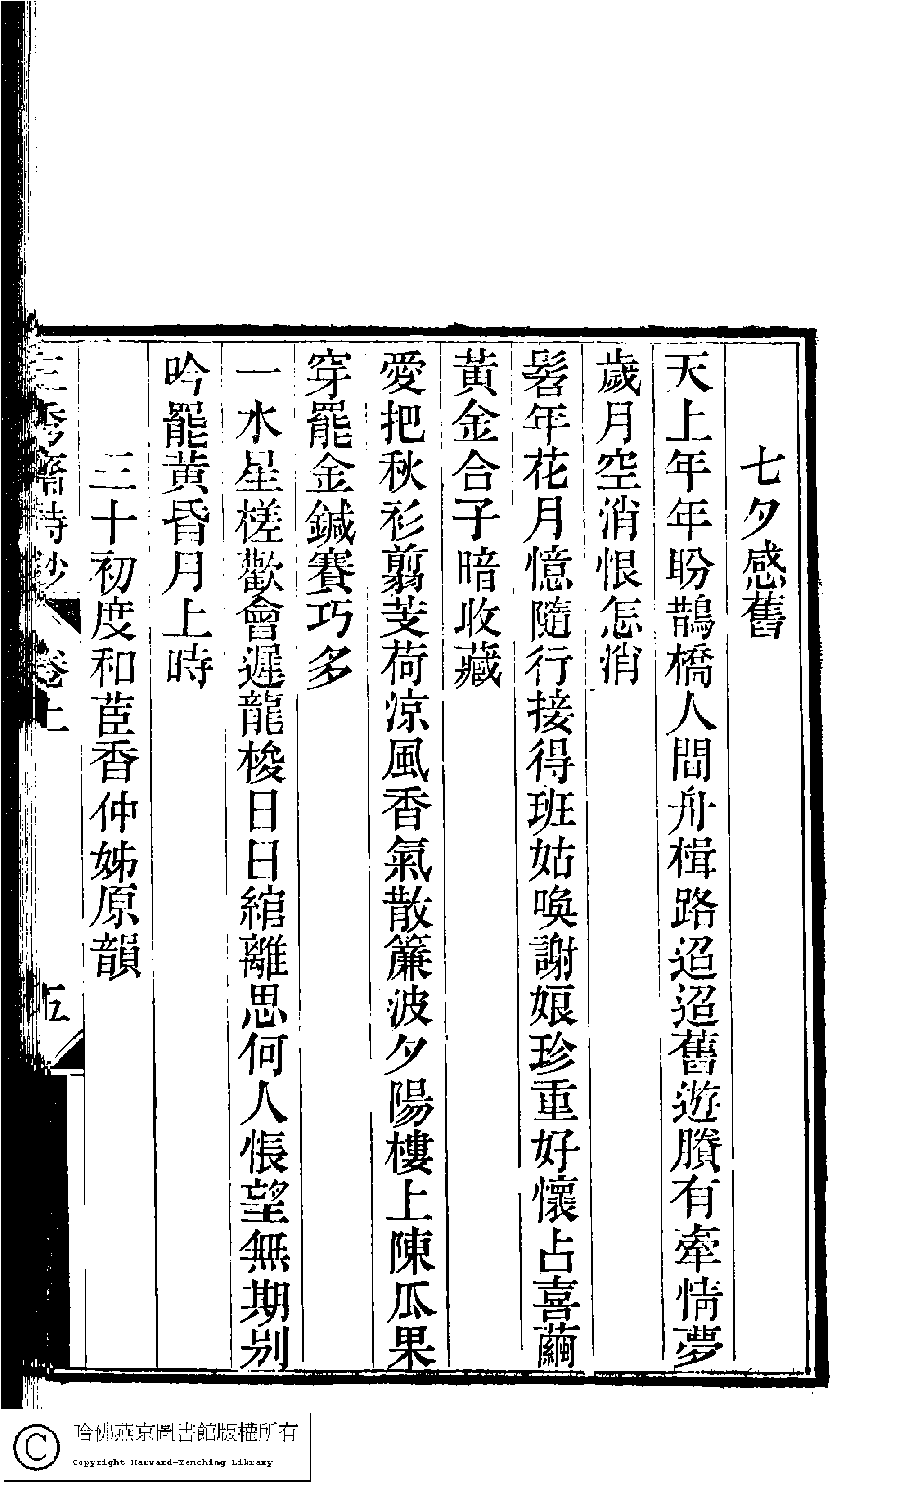 七夕感舊
天上年年盼鵲橋人間舟楫路迢迢舊遊賸有牽情夢
歲月空消恨怎消
髫年花月憶隨行接得班姑喚謝娘珍重好懷占喜繭
黃金合子暗收藏
愛把秋衫翦芰荷涼風香氣散簾波夕陽樓上陳瓜果
穿罷金鍼賽巧多
一水星槎歡會遲龍梭日日綰離思何人悵望無期別
吟罷黃昏月上時
三十初度和茞香仲姊原韻
三秀齋詩鈔 卷上 五
哈佛燕京圖書館版權所有
Copyright Harvard-Yenching Library